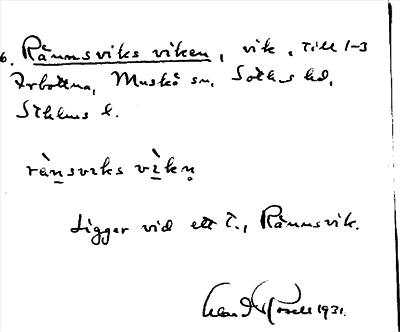 6. Rånnsviks viken, vik, till 1-3
Arbottna, Muskö sn, Soth-s hd,
Sthlms l.
rå̀n̲svɩks vì̲kn̥
Ligger vid ett t., Rånnsvik.
1931.